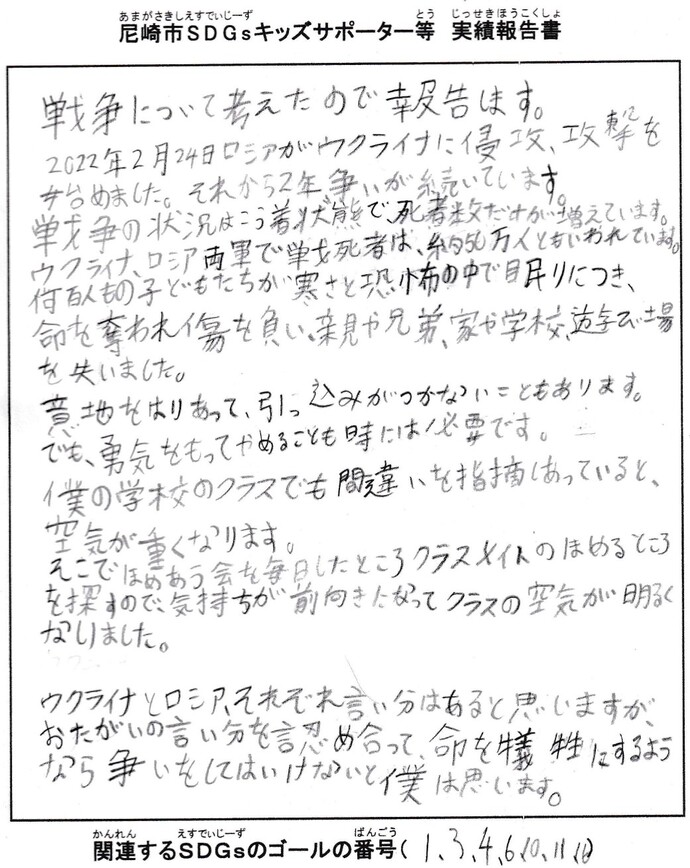 あまがさきしえすでぃじーず とう じっせきほうこくしょ
尼崎市SDGsキッズサポーター等 実績報告書
戦争について考えたので報告ます。
2022年2月24日ロシアがウクライナに侵攻、攻撃を
始めました。それから2年、争いが続いています。
戦争の状況はこう着状態で、死者数だけが増えています。
ウクライナ、ロシア両軍で戦死者は、約50万人ともいわれています。
何百人もの子どもたちが寒さと恐怖の中で眠りにつき、
命を奪われ傷を負い、親や兄弟、家や学校、遊び場
を失いました。
意地をはりあって、引っ込みがつかないこともあります。
でも、勇気をもってやめることも時には必要です。
僕の学校のクラスでも間違いを指摘しあっていると、
空気が重くなります。
そこでほめあう会を毎日したところクラスメイトのほめるところ
を探すので、気持ちが前向きになってクラスの空気が明るく
なりました。
ウクライナとロシア、それぞれ言い分はあると思いますが、
おたがいの言い分を認め合って、命を犠牲にするよう
なら争いをしてはいけないと僕は思います。
かんれん えすでぃじーず ばんごう
関連するSDGsのゴールの番号( 1,3,4,6,10,11,16